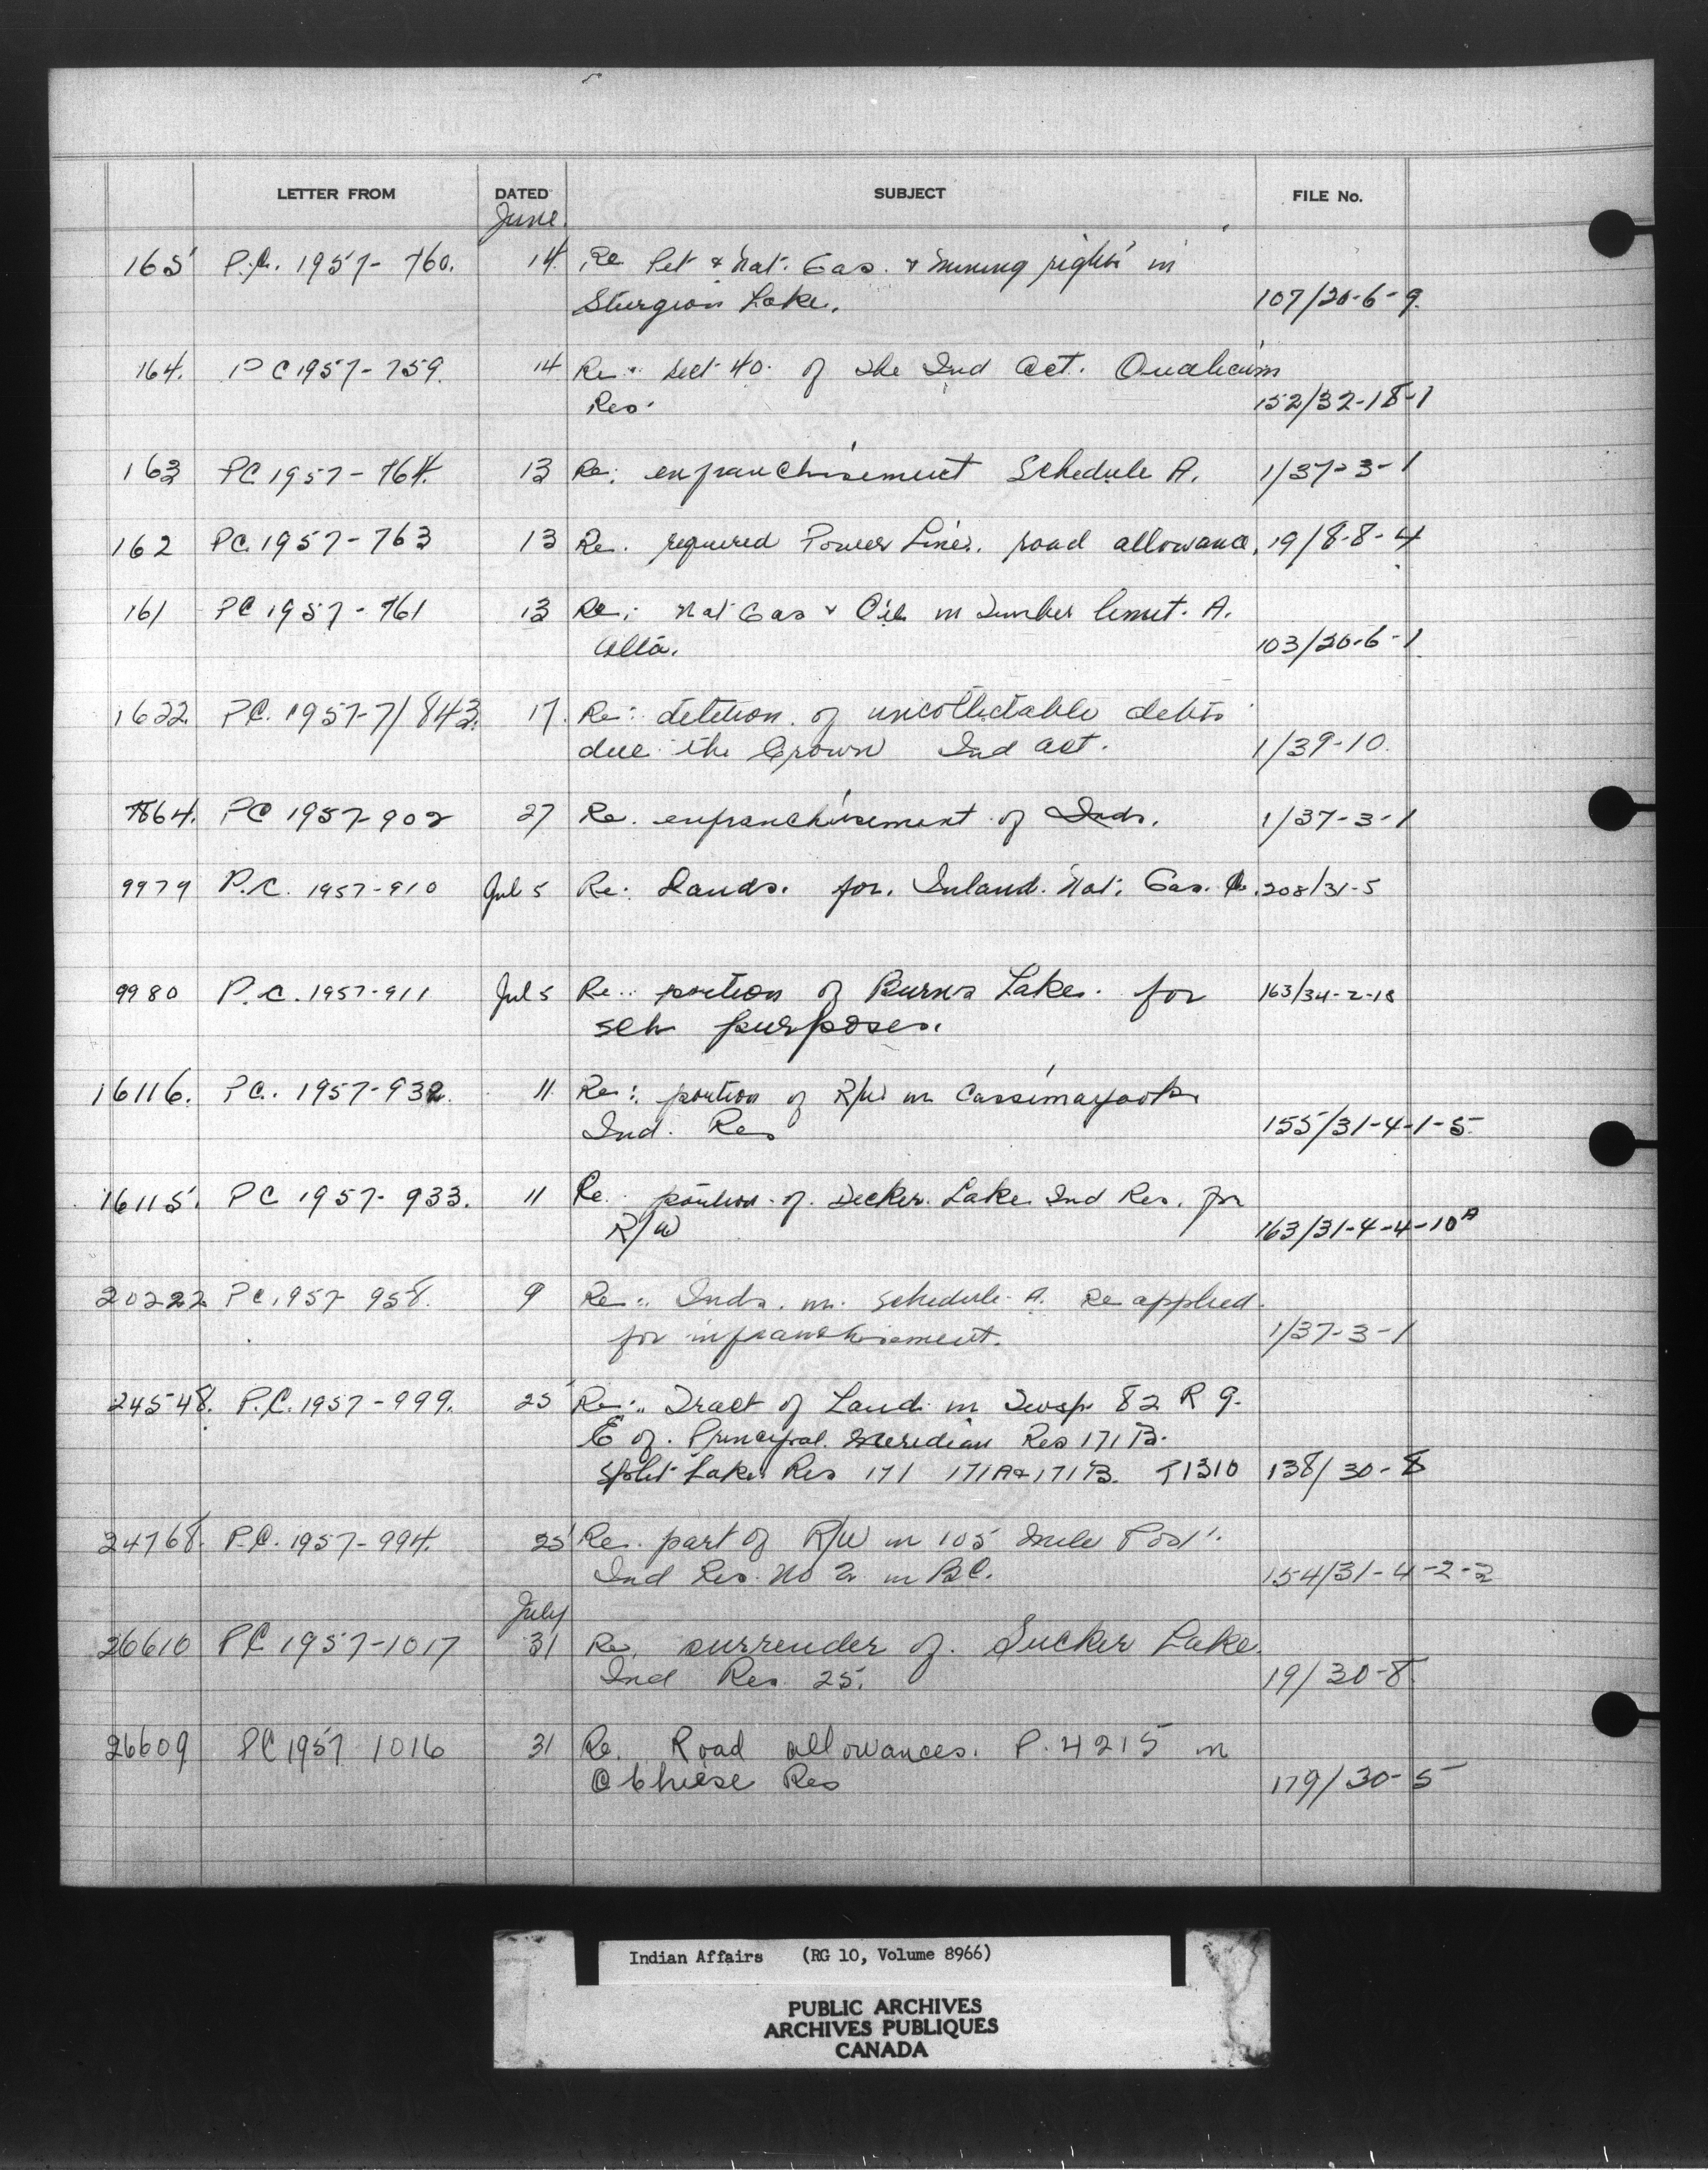 LETTER FROM DATED SUBJECT FILE No.
June
165 P.C. 1957-760. 14 Re Pet & Nat. Gas. & mining rights in
Sturgeon Lake. 107/20-6-9.
164. PC 1957-759. 14 Re. Sect 40. of the Ind Act. Qualicum
Res. 152/32-18-1
163 PC 1957-764. 13 Re: enfranchisement Schedule A. 1/37-3-1
162 PC. 1957-763 13 Re. required Power Lines. road allowance, 19/8-8-4
161 PC 1957-761 13 Re: Nat Gas & Oil in Timber limit. A.
Alta. 103/20-6-1
1622. PC. 1957-7/843. 17. Re: deletion of uncollectable debts
due the Crown Ind Act. 1/39-10.
7864. PC 1957-902 27 Re. enfranchisement of Inds. 1/37-3-1
9979 P.C. 1957-910 Jul 5 Re: Lands. for. Inland. Nat. Gas. Co. 208/31-5
9980 P.C. 1957-911 Jul 5 Re. portion of Burns Lake. for 163/34-2-18
sch purposes.
16116. PC. 1957-932. 11 Re: portion of R/W in Cassimayooks
Ind. Res 155/31-4-1-5
16115. PC 1957-933. 11 Re. portion of. Decker Lake Ind Res. for
R/W 163/31-4-4-10A
20222 PC. 1957 958. 9 Re: Inds. in. schedule A. Re applied
for infranchisement. 1/37-3-1
24548. P.C. 1957-999. 25 Re: Tract of Land in Twsp 82 R 9.
E of. Principal Meridian Res 171 B.
Split Lake Res 171 171A & 171B. T1310 138/30-8
24768. P.C. 1957-994. 25 Re. part of R/W in 105 Mile Post
Ind Res. No 2. in BC. 154/31-4-2-2
July
26610 PC 1957-1017 31 Re. surrender of. Sucker Lake.
Ind Res. 25. 19/30-8
26609 PC 1957 1016 31 Re. Road allowances. P. 4215 in
O Chiese Res 179/30-5
Indian Affairs (RG 10, Volume 8966)
PUBLIC ARCHIVES
ARCHIVES PUBLIQUES
CANADA